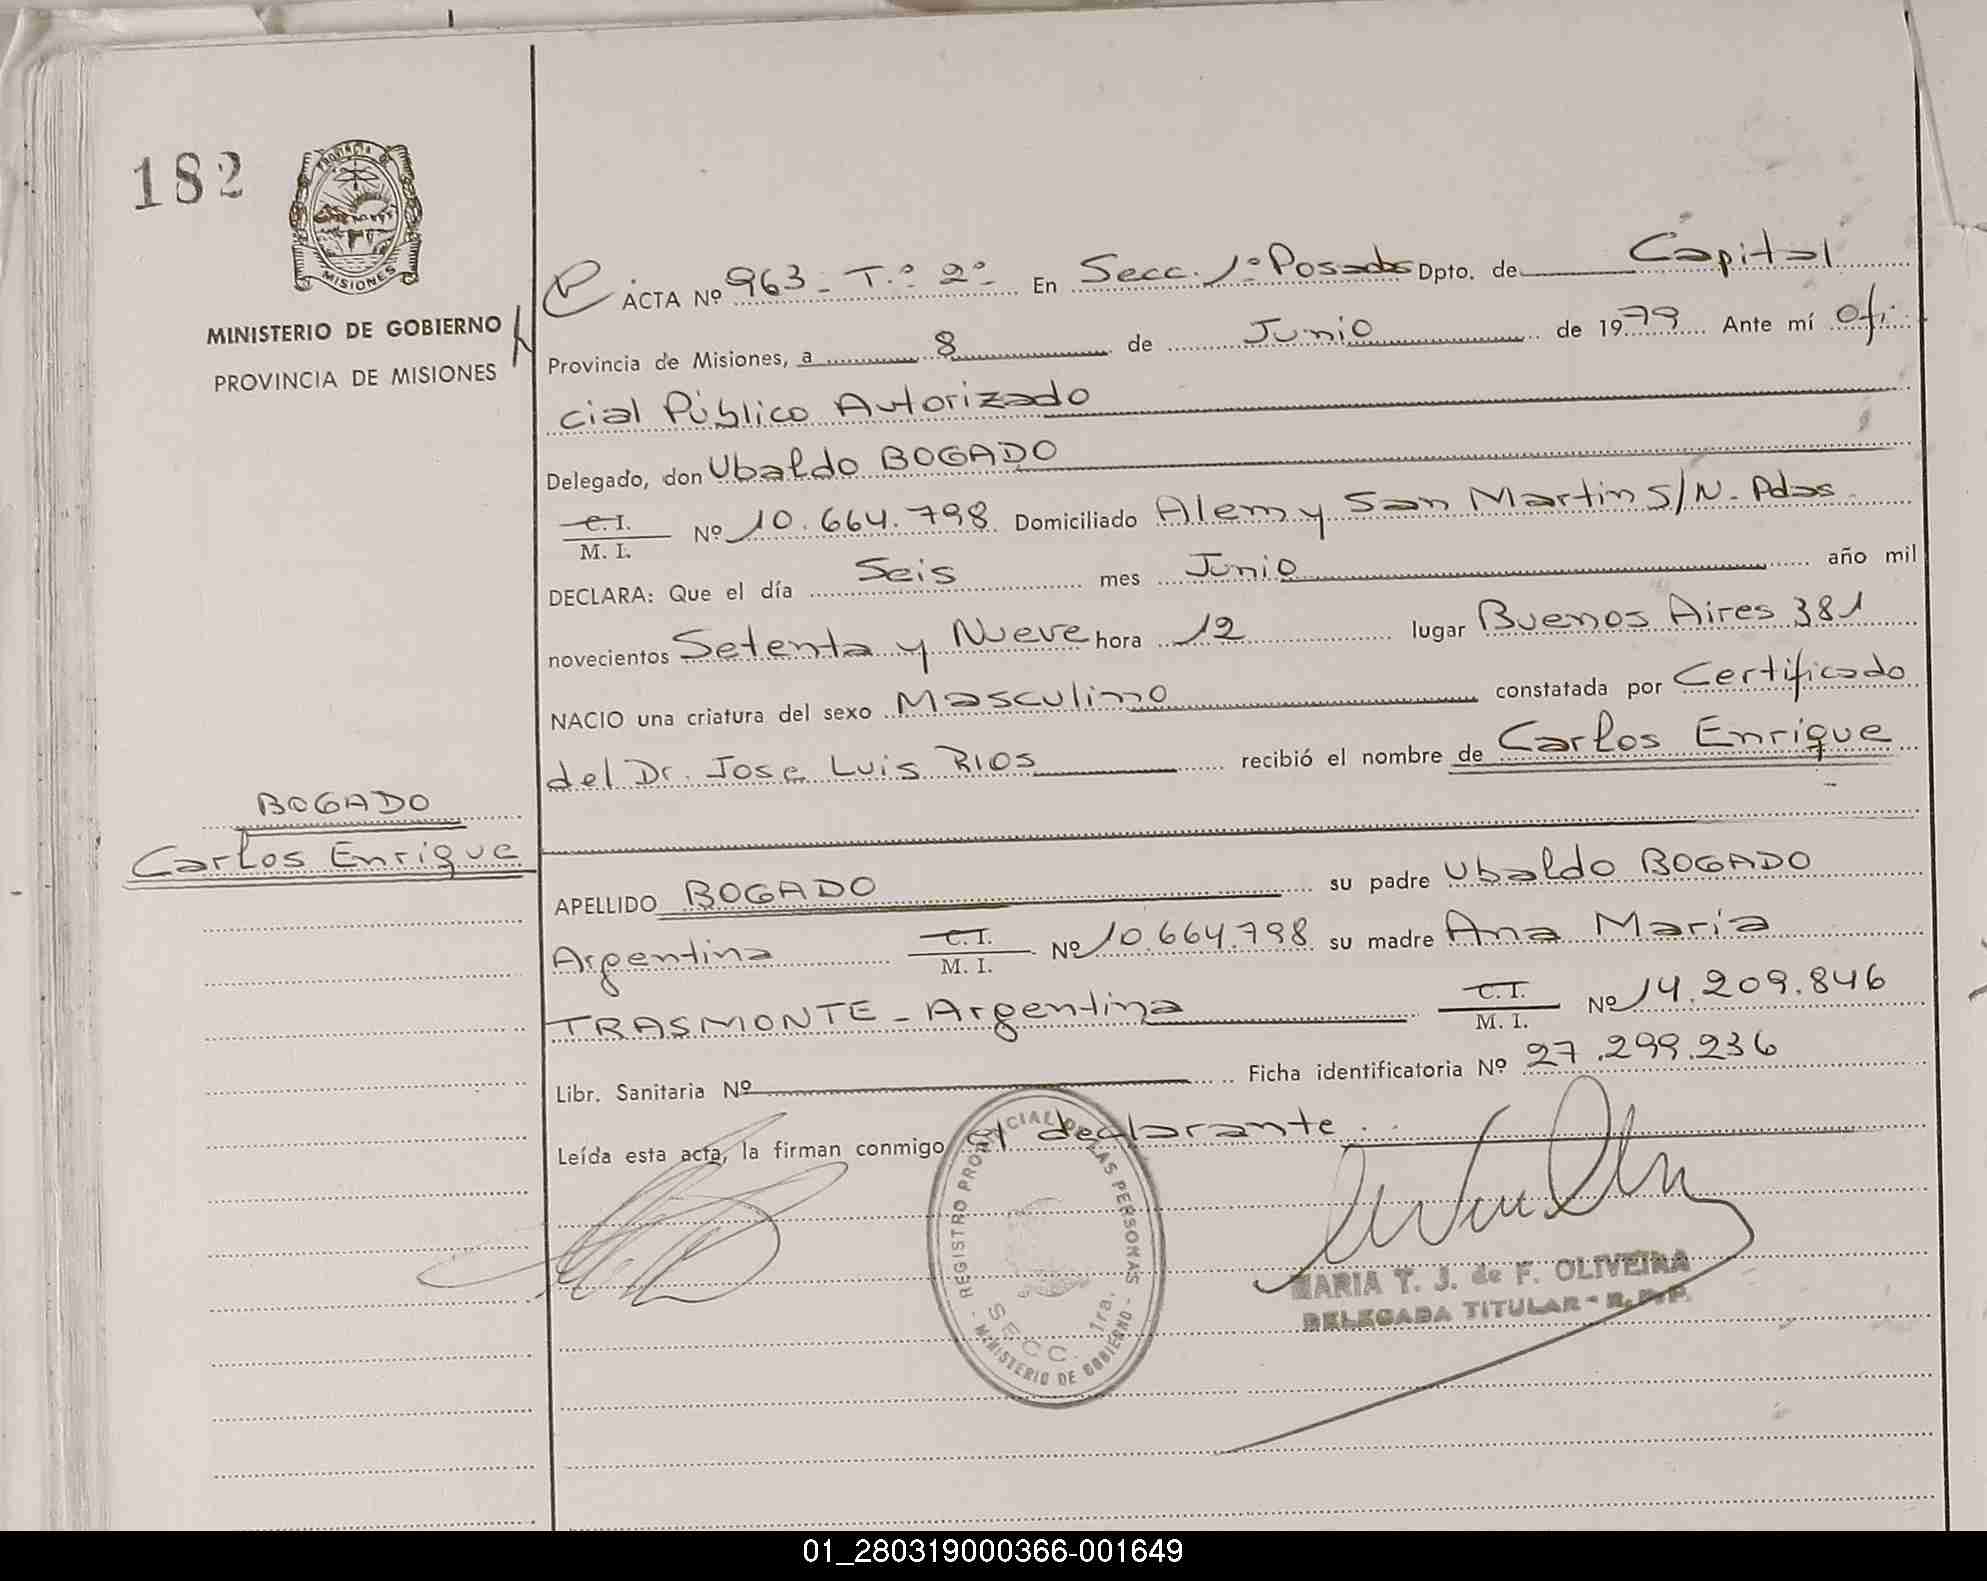 182
PROVINCIA DE
MISIONES
MINISTERIO DE GOBIERNO
PROVINCIA DE MISIONES
BOGADO
Carlos Enrique
ACTA Nº 963 - T.º 2º - En Secc. 1º Posadas Dpto. de Capital
Provincia de Misiones, a 8 de Junio de 1979 Ante mí Ofi
cial Público Autorizado
Delegado, don Ubaldo BOGADO
C. I.
M. I. Nº 10.664.798 Domiciliado Alem y San Martin S/N. Pdas
DECLARA: Que el día Seis mes Junio año mil
novecientos Setenta y Nueve hora 12 lugar Buenos Aires 381
NACIO una criatura del sexo Masculino constatada por Certificado
del Dr. Jose Luis RIOS recibió el nombre de Carlos Enrique
APELLIDO BOGADO su padre Ubaldo BOGADO
Argentina C. I. M. I. Nº 10.664.798 su madre Ana Maria
TRASMONTE - Argentina C. I. M. I. Nº 14.209.846
Libr. Sanitaria Nº Ficha identificatoria Nº 27.299.236
Leída esta acta, la firman conmigo el declarante.
REGISTRO PROVINCIAL DE LAS PERSONAS
SECC. 1ra.
- MINISTERIO DE GOBIERNO -
MARIA T. J. de F. OLIVEIRA
DELEGADA TITULAR - R. P. P.
01_280319000366-001649